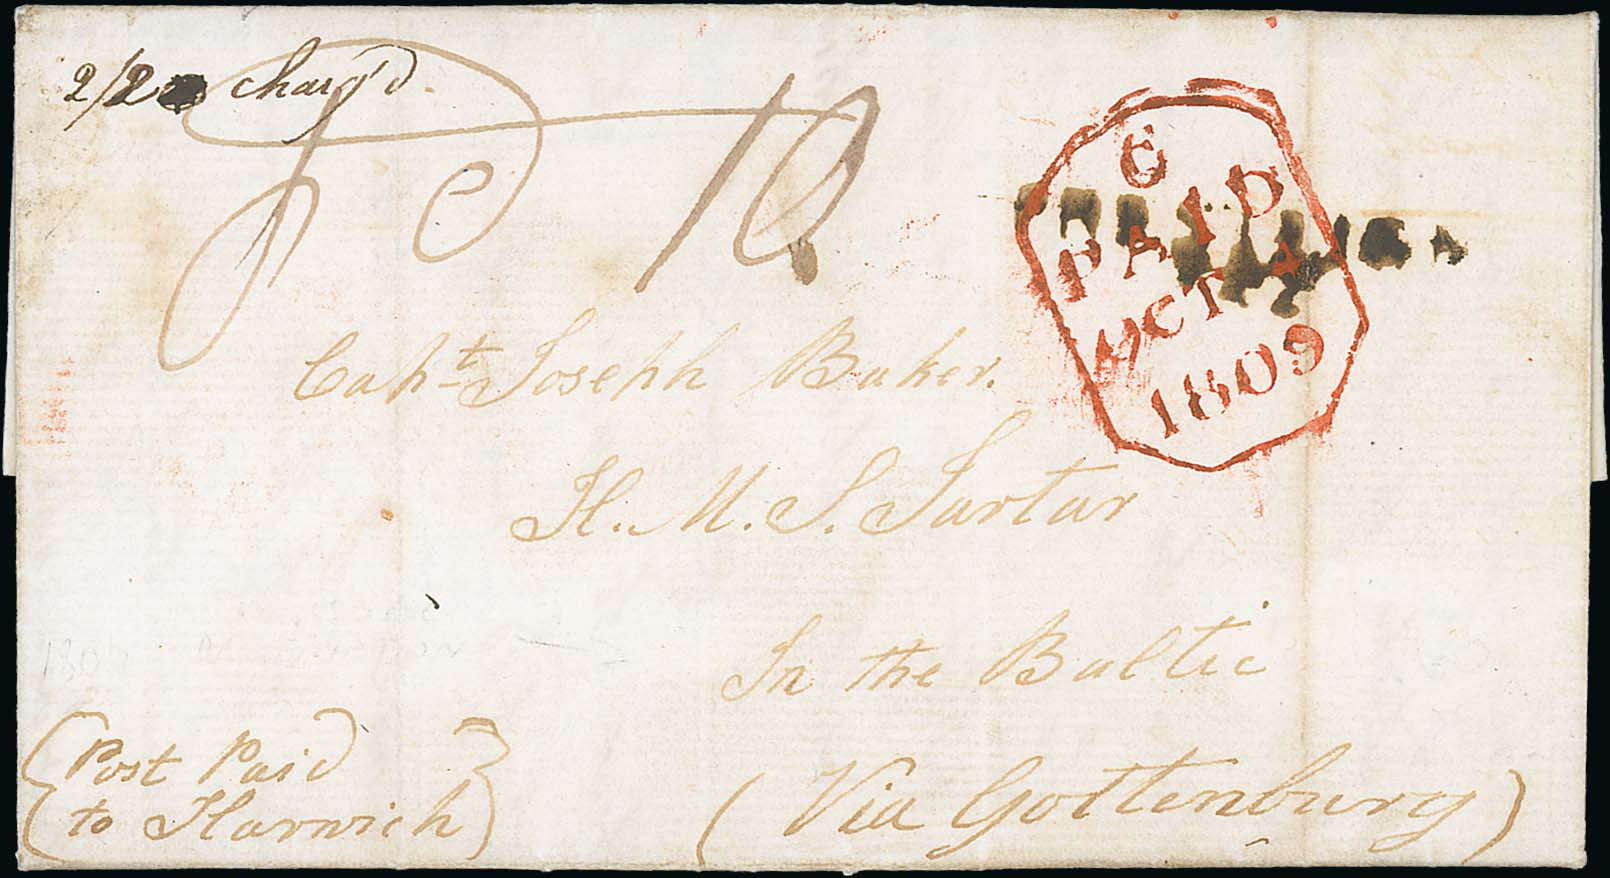 2/2 Charg'd.
6
PAID
OCT
1809
Capt. Joseph Baker.
H. M. S. Tartar
In the Baltic
(Post Paid
to Harwich)
(Via Gottenburg)